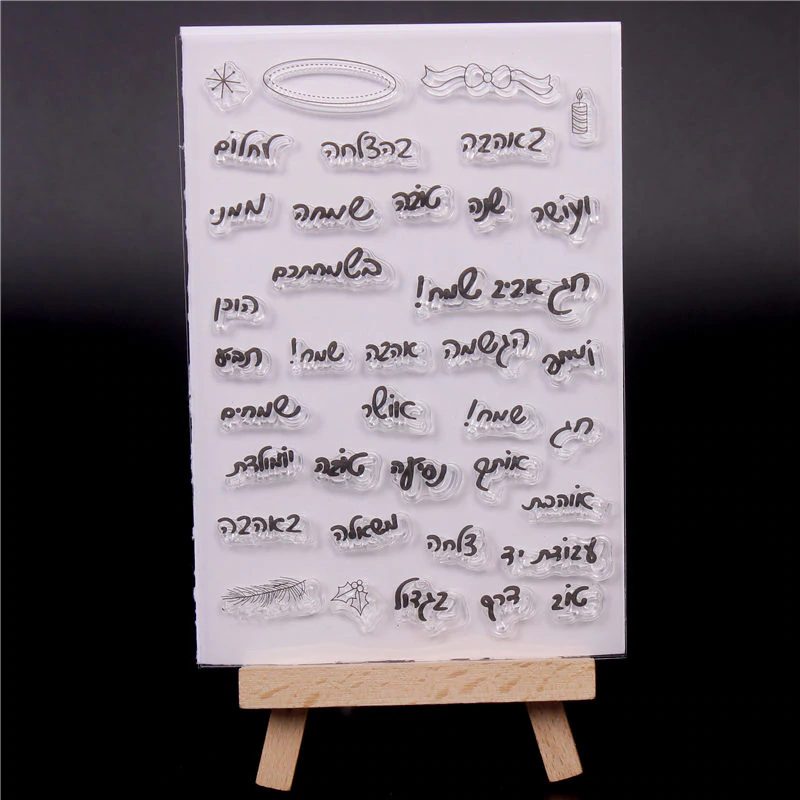 באהבה בהצלחה לחלום
ועושר שנה טובה שמחה ממני
בשמחתכם
חג אביב שמח!
הוכן
ומותק הגשמה אהבה שמח! תביע
חג שמח! אושר שמחים
אותך נסיעה טובה יומולדת
אוהבת
משאלה באהבה
עבודת יד צלחה
טוב דרך בגדול